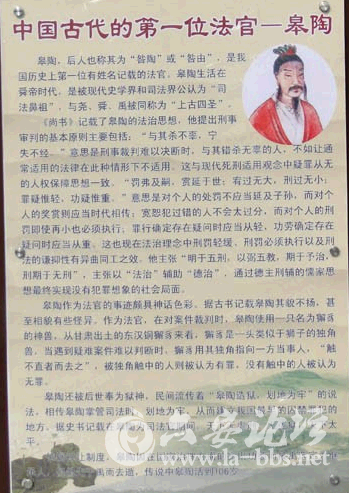 中国古代的第一位法官—皋陶
皋陶，后人也称其为“咎陶”或“咎由”，是我
国历史上第一位有姓名记载的法官，皋陶生活在
舜帝时代，是被现代史学界和司法界公认为“司
法鼻祖”，与尧、舜、禹被同称为“上古四圣”。
《尚书》记载了皋陶的法治思想，他提出刑事
审判的基本原则主要包括：“与其杀不辜，宁
失不经。”意思是刑事裁判难以决断时，与其错杀无辜的人，不如让通
常适用的法律在此种情形下不适用。这与现代死刑适用观念中疑罪从无
的人权保障思想一致。“罚弗及嗣，赏延于世；宥过无大，刑过无小；
罪疑惟轻，功疑惟重。”意思是对个人的处罚不应当延及子孙，而对个
人的奖赏则应当时代相传；宽恕犯过错的人不会太过分，而对个人的刑
罚即使再小也必须执行。罪行确定存在疑问时应当从轻，功劳确定存在
疑问时应当从重。这也现在法治理念中刑罚轻缓、刑罚必须执行以及刑
法的谦抑性有异曲同工之效。他主张“明于五刑，以弼五教，期于予治，
刑期于无刑”，主张以“法治”辅助“德治”，通过德主刑辅的儒家思
想最终实现没有犯罪想象的社会局面。
皋陶作为法官的事迹颇具神话色彩。据古书记载皋陶其貌不扬，甚
至相貌有些怪异。作为法官，在对案件裁判时，皋陶使用一只名为獬豸
的神兽，从甘肃出土的东汉铜獬豸来看，獬豸是一头类似于狮子的独角
兽。当遇到疑难案件难以判断时，獬豸用其独角指向一方当事人，“触
不直者而去之”，被独角触中的人则被认为有罪，没有触中的人被认为
无罪。
皋陶还被后世奉为狱神，民间流传着“皋陶造狱，划地为牢”的说
法，相传皋陶掌管司法时，划地为牢，从而
地方。据史书记载在皋陶为司法官期间，无
平。
传说中皋陶活到106岁
六安论坛
la-bbs.net